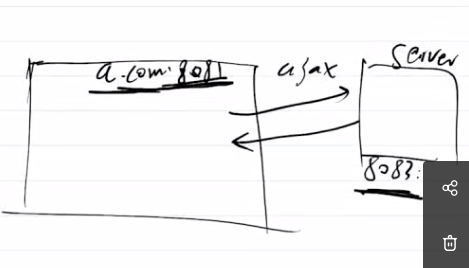 a.com:8081
ajax
Server
8083: